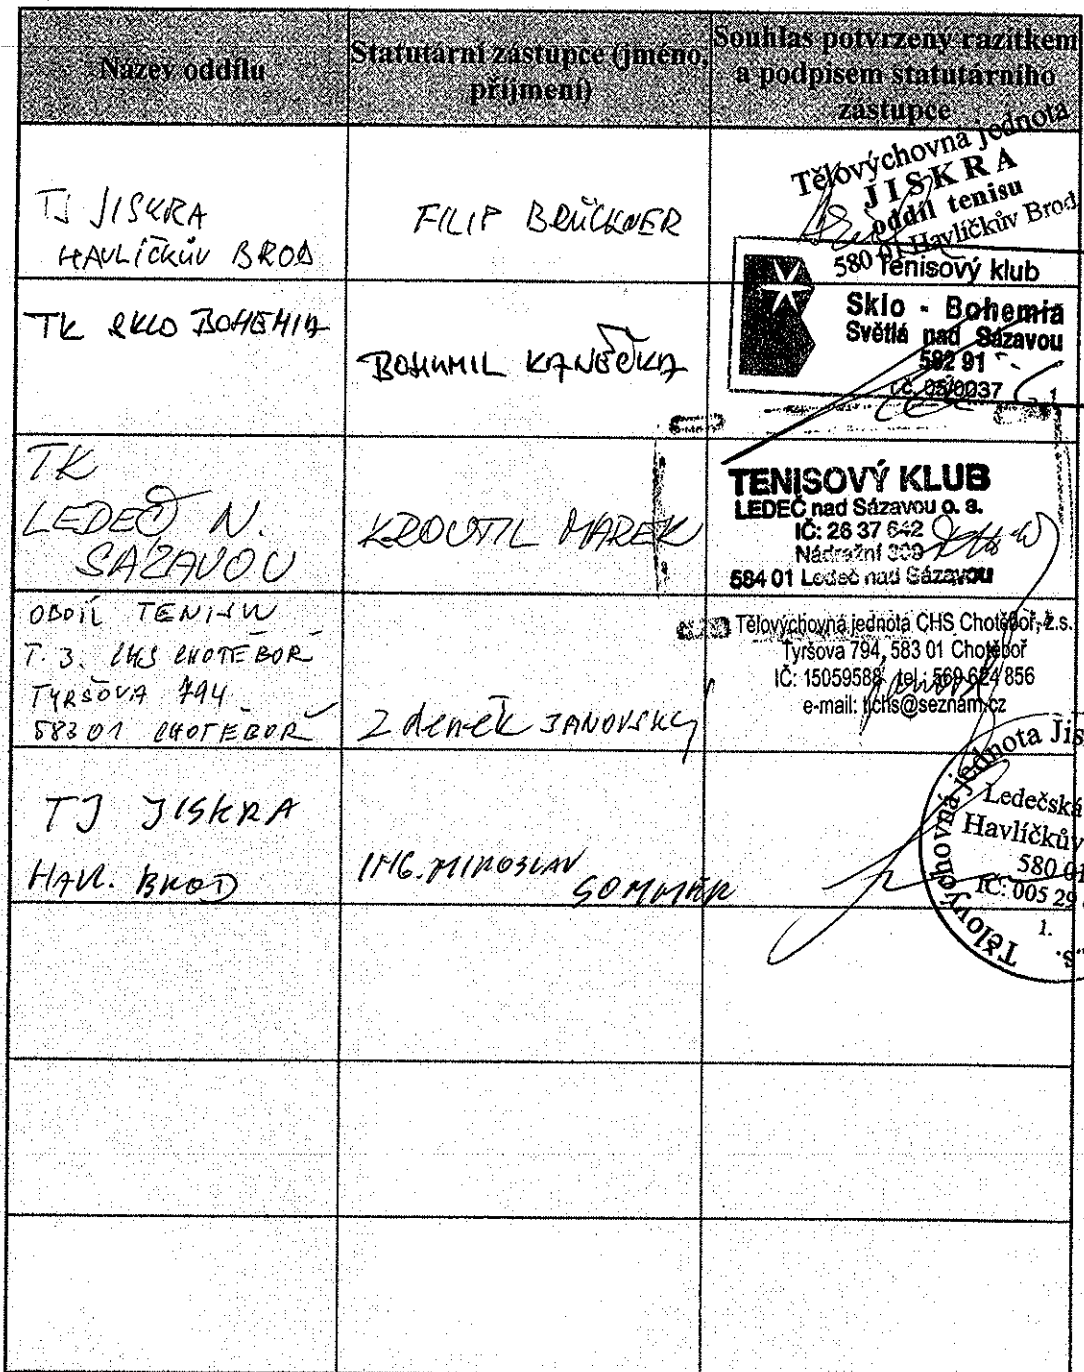 Název oddílu
Statutární zástupce (jméno,
příjmení)
Souhlas potvrzený razítkem
a podpisem statutárního
zástupce
TJ JISKRA
HAVLÍČKŮV BROD
FILIP BRÜCKNER
Tělovýchovná jednota
JISKRA
oddíl tenisu
580 01 Havlíčkův Brod
TK SKLO BOHEMIA
BOHUMIL KAŇĚČKA
Tenisový klub
Sklo - Bohemia
Světlá nad Sázavou
582 91
r.č. 05/0037
TK
LEDEČ N.
SÁZAVOU
KROUTIL MAREK
TENISOVÝ KLUB
LEDEČ nad Sázavou o. s.
IČ: 26 37 642
Nádražní 309
584 01 Ledeč nad Sázavou
ODDÍL TENISU
T. J. CHS CHOTĚBOŘ
TYRŠOVA 794
583 01 CHOTĚBOŘ
Zdeněk JANOVSKÝ
Tělovýchovná jednota CHS Chotěboř, z.s.
Tyršova 794, 583 01 Chotěboř
IČ: 15059588, tel.: 569 624 856
e-mail: tjchs@seznam.cz
TJ JISKRA
HAVL. BROD
ING. MIROSLAV
SOMMER
Tělovýchovná jednota Jis
Ledečská
Havlíčkův
580 01
IČ: 005 29
1.